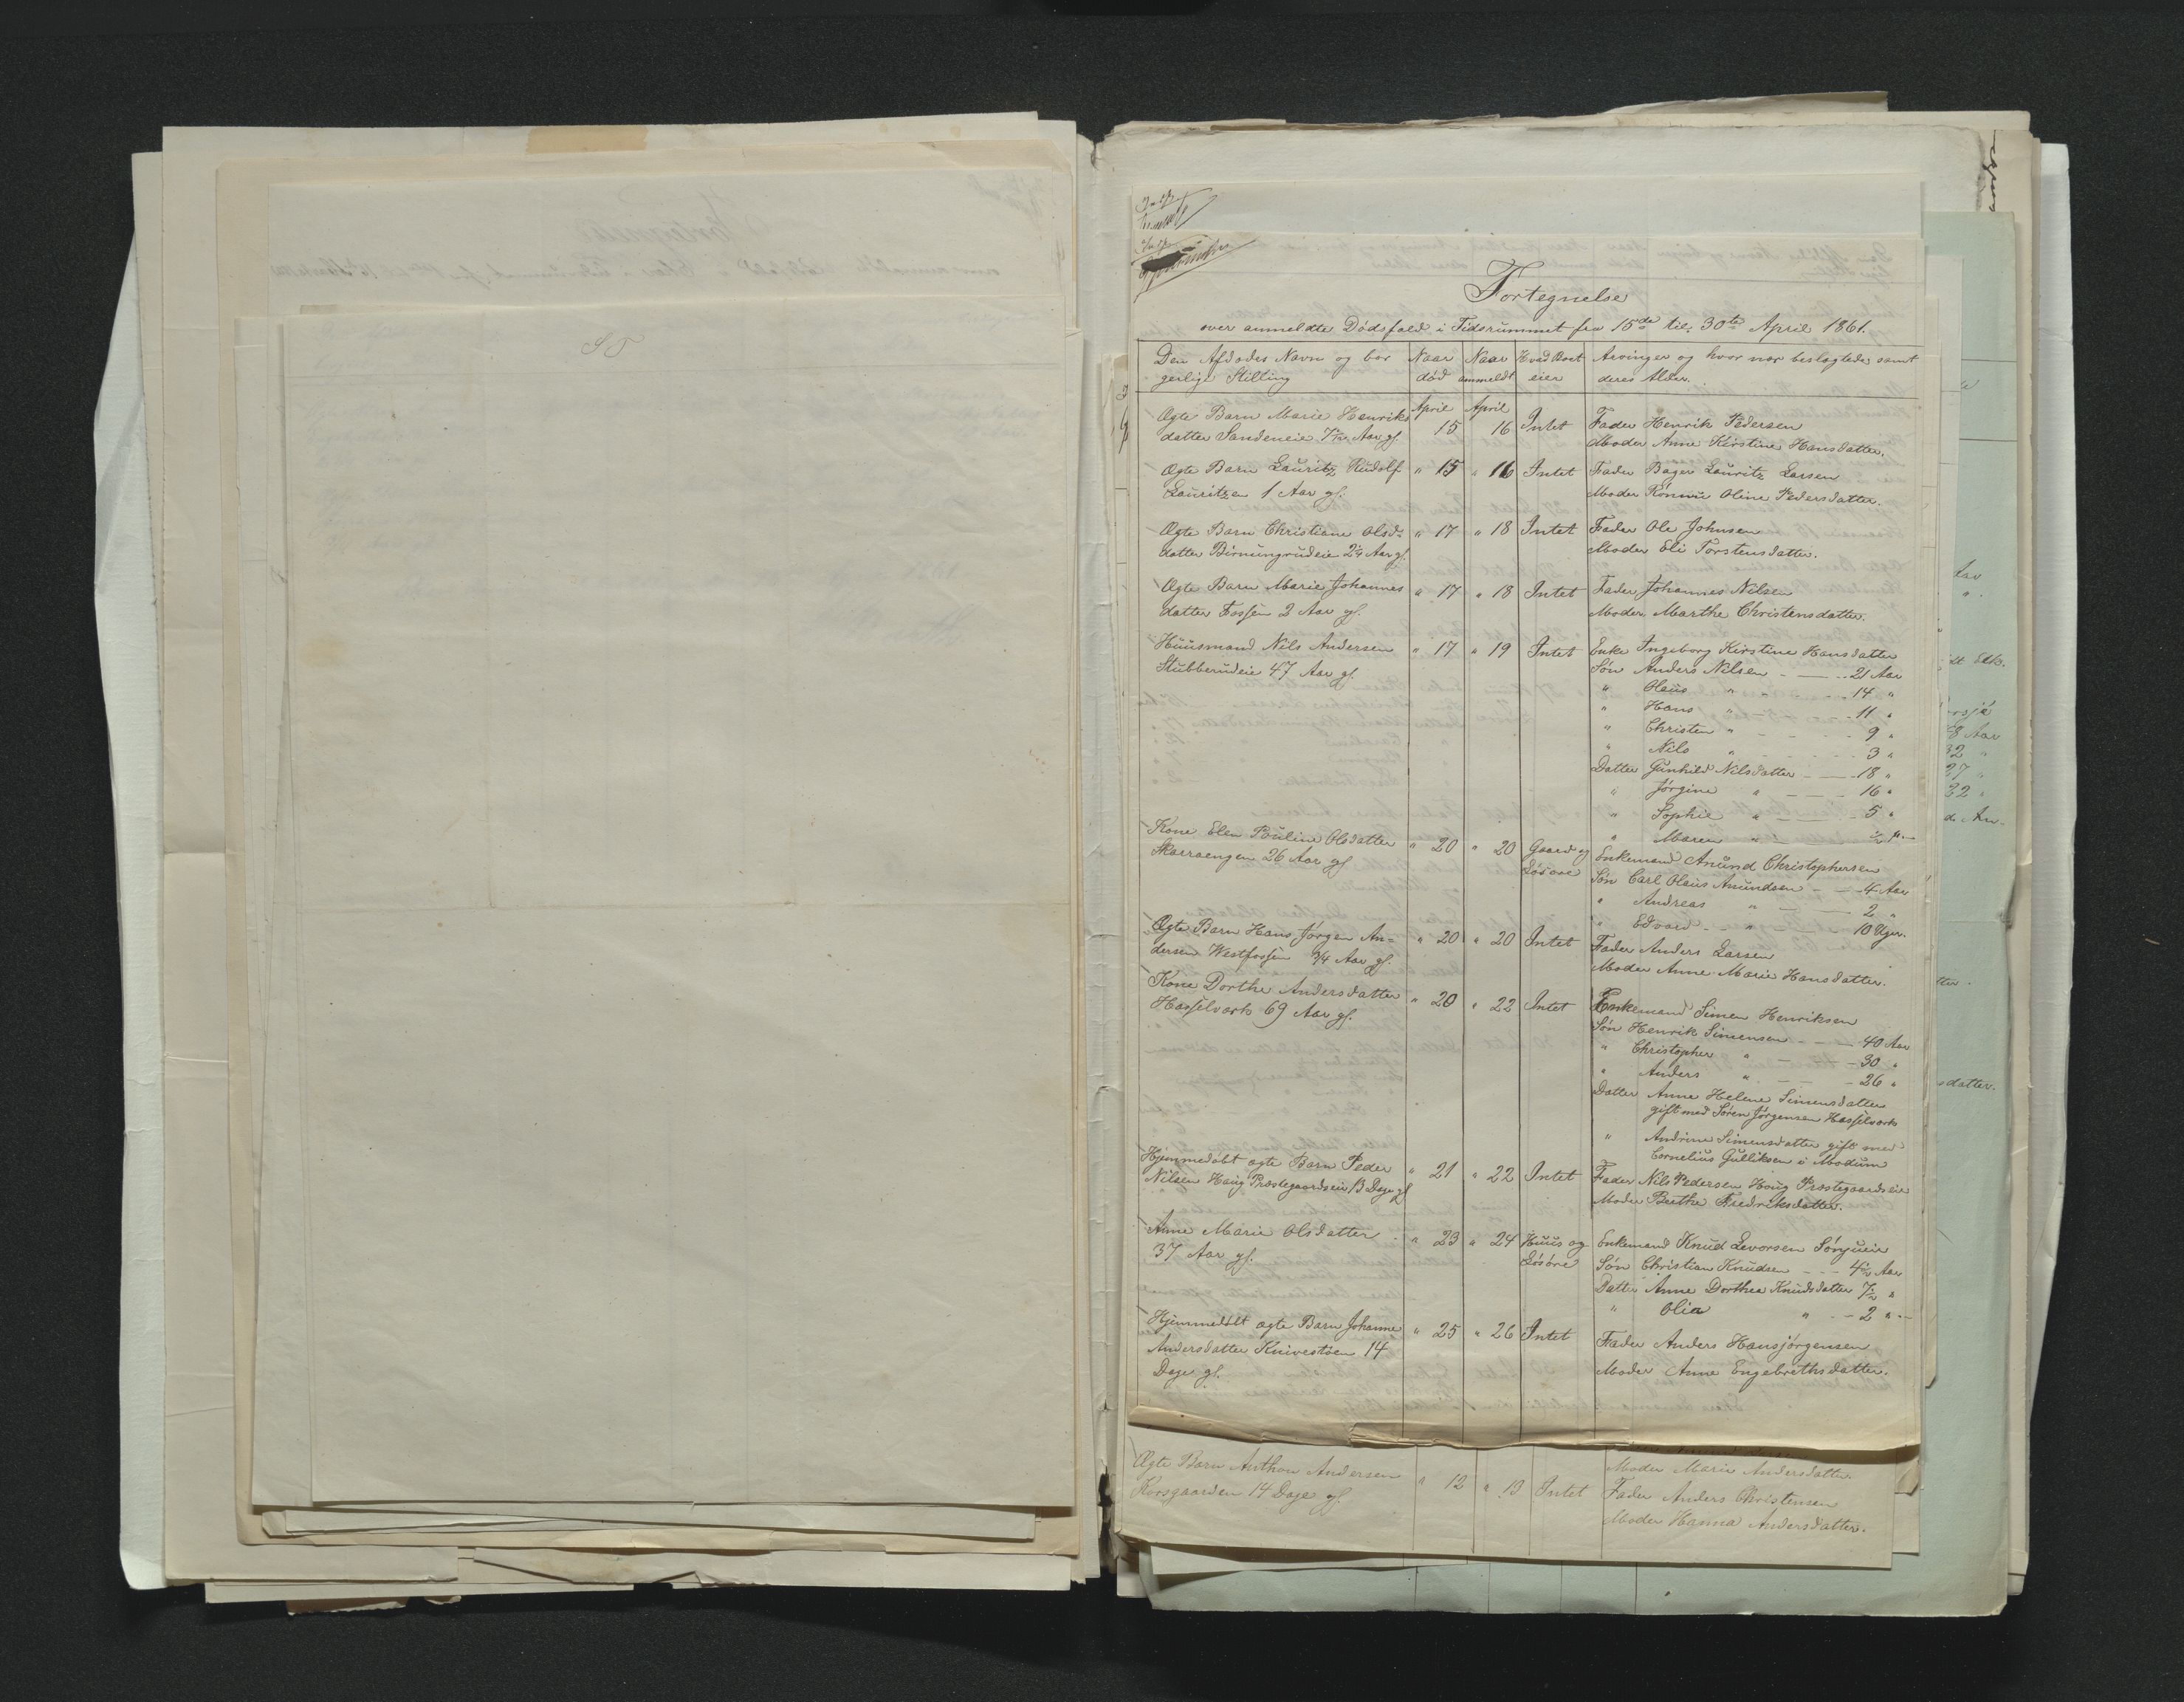 S T
Fortegnelse
over anmeldte Dødsfald i Tidsrummet fra 15de til 30te April 1861.
Den Afdødes Navn og bor
gerlige Stilling
Naar
død
Naar
anmeldt
Hvad Boet
eier
Arvinger og hvor nær beslægtede samt
deres Alder.
April April
Ægte Barn Marie Henriks
datter Sandeneie Aar gl. 15 16 Intet Fader Henrik Pedersen
Moder Anne Kirstine Hansdatter.
Ægte Barn Lauritz Rudolf " 15 " 16 Intet Fader Bager Lauritz Larsen
Lauritzen 1 Aar gl. Moder Rønnie Oline Pedersdatter.
Ægte Barn Christiane Olsd= " 17 " 18 Intet Fader Ole Johnsen
datter 2¼ Aar gl. Moder Eli Torstensdatter.
Ægte Barn Marie Johannes " 17 " 18 Intet Fader Johannes Nilsen
datter Fossen 2 Aar gl. Moder Marthe Christensdatter.
Huusmand Nils Andersen " 17 " 19 Intet Enke Ingeborg Kirstine Hansdatter
Stubberudeie 47 Aar gl. Søn Anders Nilsen - — - 21 Aar
" Olaus " " - - 14 "
" Hans " - - - 11 "
" Christen " - - - 9 "
" Nils " - - - 3 "
Datter Gunhild Nilsdatter - — 18 "
" Jørgine " - — 16 "
" Sophie " - — 5 "
" Maren " - — ½ " -
Kone Elen Pouline Olsdatter " 20 " 20 Gaard og Enkemand Anund Christophersen
Skarraengen 26 Aar gl. Løsøre Søn Carl Olaus Amundsen - — 4 Aar
" Andreas " - — 2 "
" Edvard - - " - - 10 Uger.
Ægte Barn Hans Jørgen An= " 20 " 20 Intet Fader Anders Larsen
dersen Westfossen ¾ Aar gl. Moder Anne Marie Hansdatter.
Kone Dorthe Andersdatter " 20 " 22 Intet Enkemand Simen Henriksen
Hasselværk 69 Aar gl. Søn Henrik Simensen - - — 40 Aar
" Christopher " - - - 30 "
" Anders " - - - 26 "
Datter Anne Helene Simensdatter
gift med Søren Jørgensen Hasselværk
" Andrine Simensdatter gift med
Cornelius Gulliksen i Modum
Hjemmedøbt ægte Barn Peder " 21 " 22 Intet Fader Nils Pedersen Houg Præstegaardseie
Nilsen Houg Præstegaardseie 13 Dage gl Moder Berthe Fredriksdatter.
Anne Marie Olsdatter " 23 " 24 Huus og Enkemand Knud Levorsen
37 Aar gl. Løsøre Søn Christian Knudsen - - - 4½ Aar
Datter Anne Dorthea Knudsdatter 7½ "
" Olia " - - 2 " -
Hjemmedøbt ægte Barn Johanne " 25 " 26 Intet Fader Anders Hansjørgensen
Andersdatter Knivestøen 14
Dage gl. Moder Anne Engebrethsdatter.
Moder Marie Andersdatter
Ægte Barn Anthon Andersen " 12 " 13 Intet Fader Anders Christensen
Korsgaarden 14 Dage gl. Moder Hanna Andersdatter.